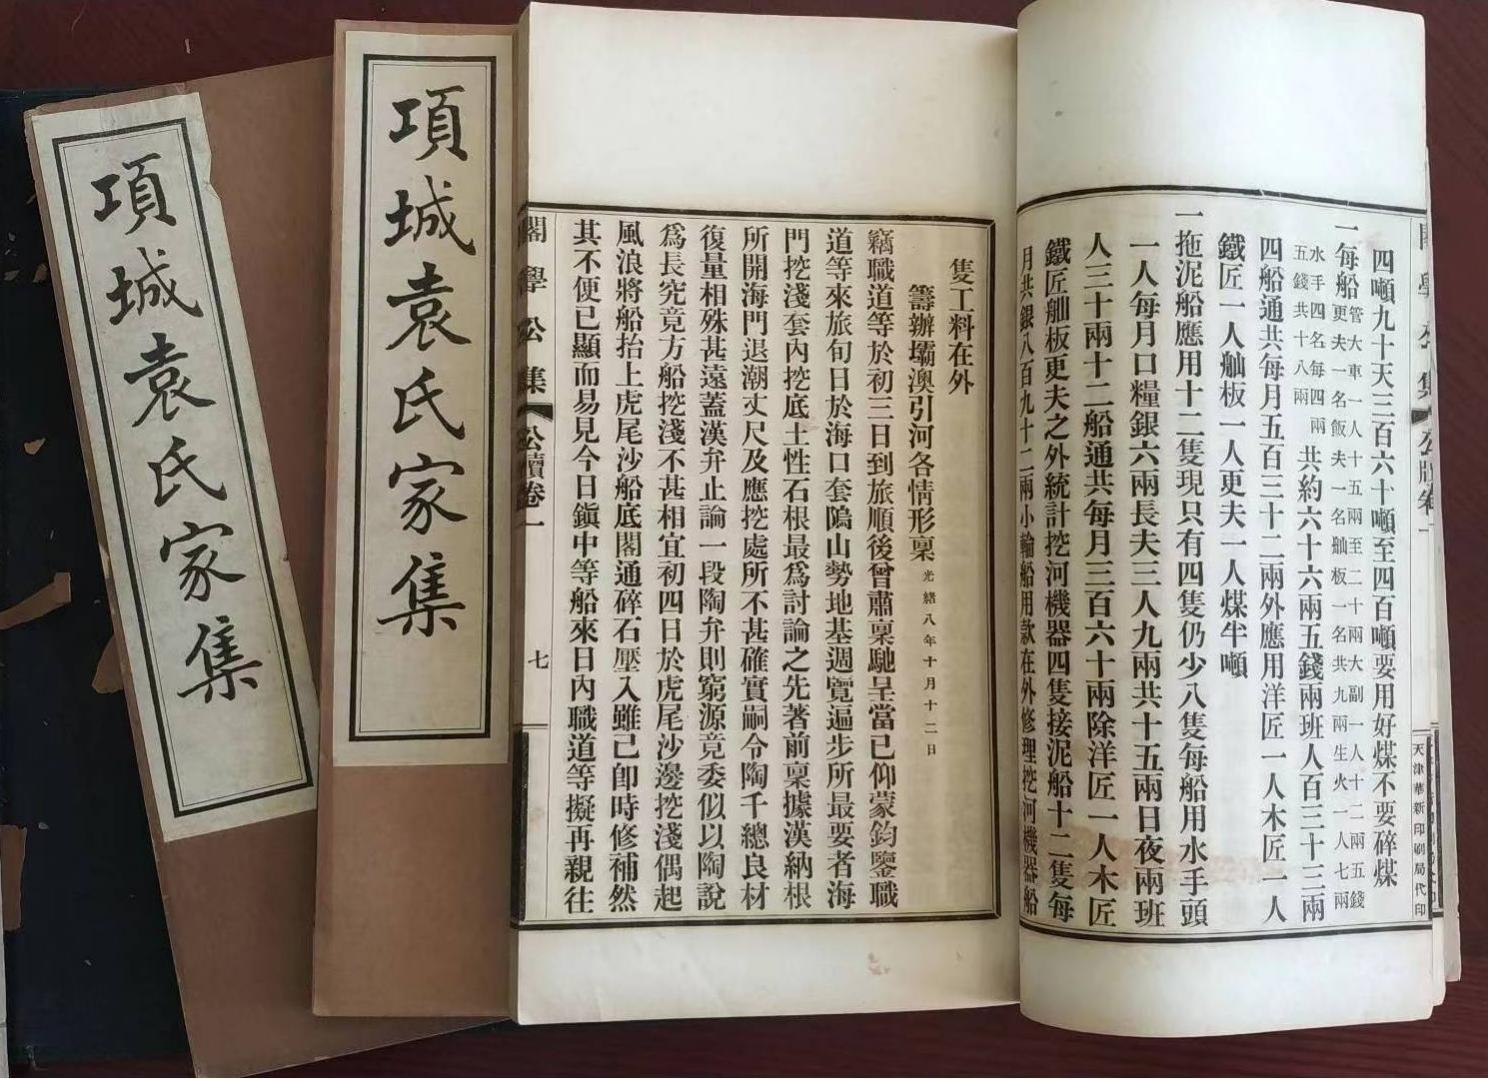 項城袁氏家集
項城袁氏家集
天津華新印刷局代印
四噸九十天三百六十噸至四百噸要用好煤不要碎煤
一每船管大車一人十五兩至二十兩大副一人十二兩五錢
更夫一名飯夫一名舢板一名共九兩生火一人七兩
水手四名每四兩
五錢共十八兩
共約六十六兩五錢兩班人百三十三兩
四船通共每月五百三十二兩外應用洋匠一人木匠一人
鐵匠一人舢板一人更夫一人煤半噸
一拖泥船應用十二隻現只有四隻仍少八隻每船用水手頭
一人每月口糧銀六兩長夫三人九兩共十五兩日夜兩班
人三十兩十二船通共每月三百六十兩除洋匠一人木匠
鐵匠舢板更夫之外統計挖河機器四隻接泥船十二隻每
月共銀八百九十二兩小輪船用款在外修理挖河機器船
隻工料在外
籌辦壩澳引河各情形稟 光緒八年十月十二日
竊職道等於初三日到旅順後曾肅稟馳呈當已仰蒙鈞鑒職
道等來旅旬日於海口套隖山勢地基週覽遍步所最要者海
門挖淺套內挖底土性石根最爲討論之先著前稟據漢納根
所開海門退潮丈尺及應挖處所不甚確實嗣令陶千總良材
復量相殊甚遠蓋漢弁止論一段陶弁則窮源竟委似以陶說
爲長究竟方船挖淺不甚相宜初四日於虎尾沙邊挖淺偶起
風浪將船抬上虎尾沙船底閣通碎石壓入雖已卽時修補然
其不便已顯而易見今日鎮中等船來日內職道等擬再親往
閣學公集 公牘卷一 七